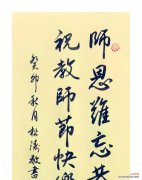 師恩難忘共
祝教師節快樂
癸卯秋月松濤敬書